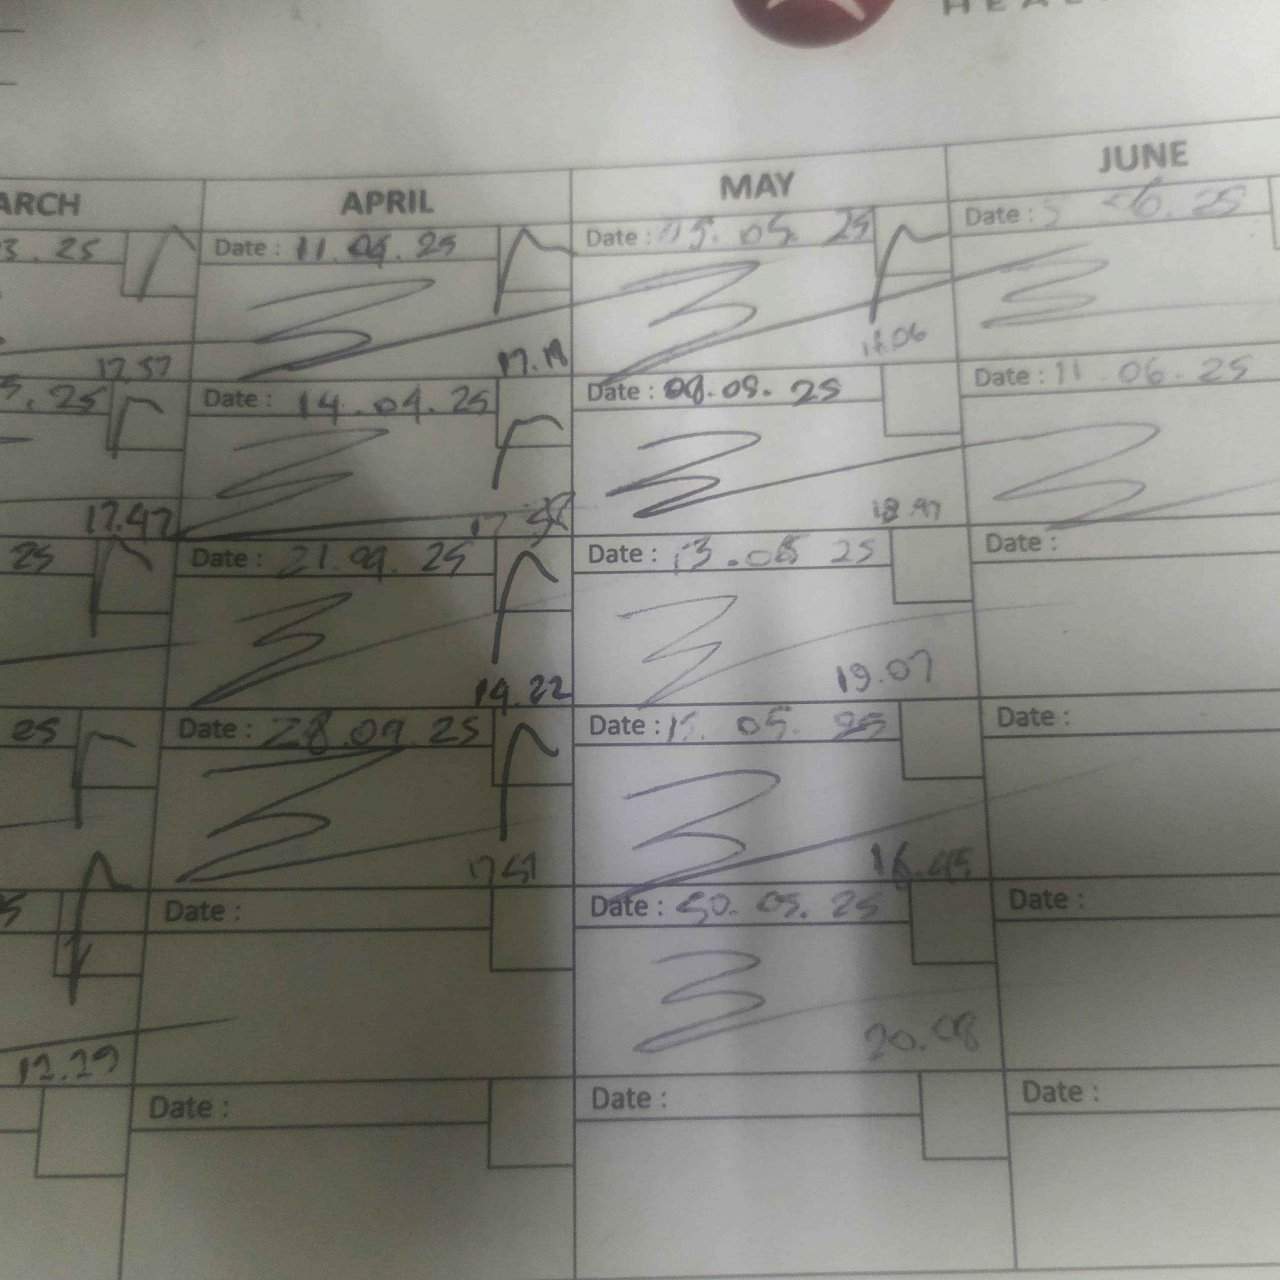 HEAL
ARCH APRIL MAY JUNE
3.25 Date : 11.04.25 Date : 05.05.25 Date : 06.25
17.57 17.19
.25 Date : 14.04.25 Date : 09.05.25 Date : 11.06.25
17.47 17 18.47
25 Date : 21.04.25 Date : 13.05 25 Date :
19.22 19.07
25 Date : 28.04 25 Date : 15.05.25 Date :
17 51 16.45
Date : Date : 30.05.25 Date :
12.29 20.08
Date : Date : Date :